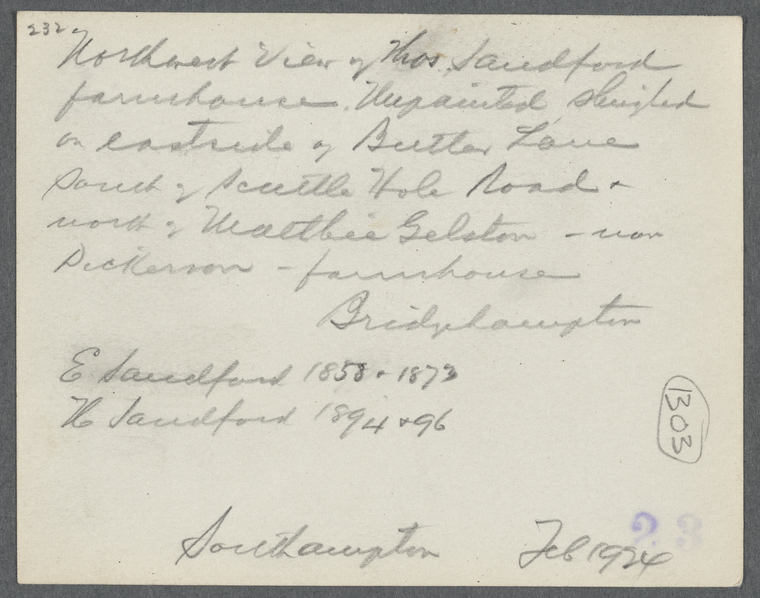 232
Northwest View of Thos. Sandford
farmhouse. Unpainted, shingled
on eastside of Butter Lane
South of Scuttle Hole Road &
north of Maltbie Gelston - now
Dickerson - farmhouse
Bridgehampton
E Sandford 1858 & 1873
H Sandford 1894 & 96
1303
23
Southampton Feb 1924